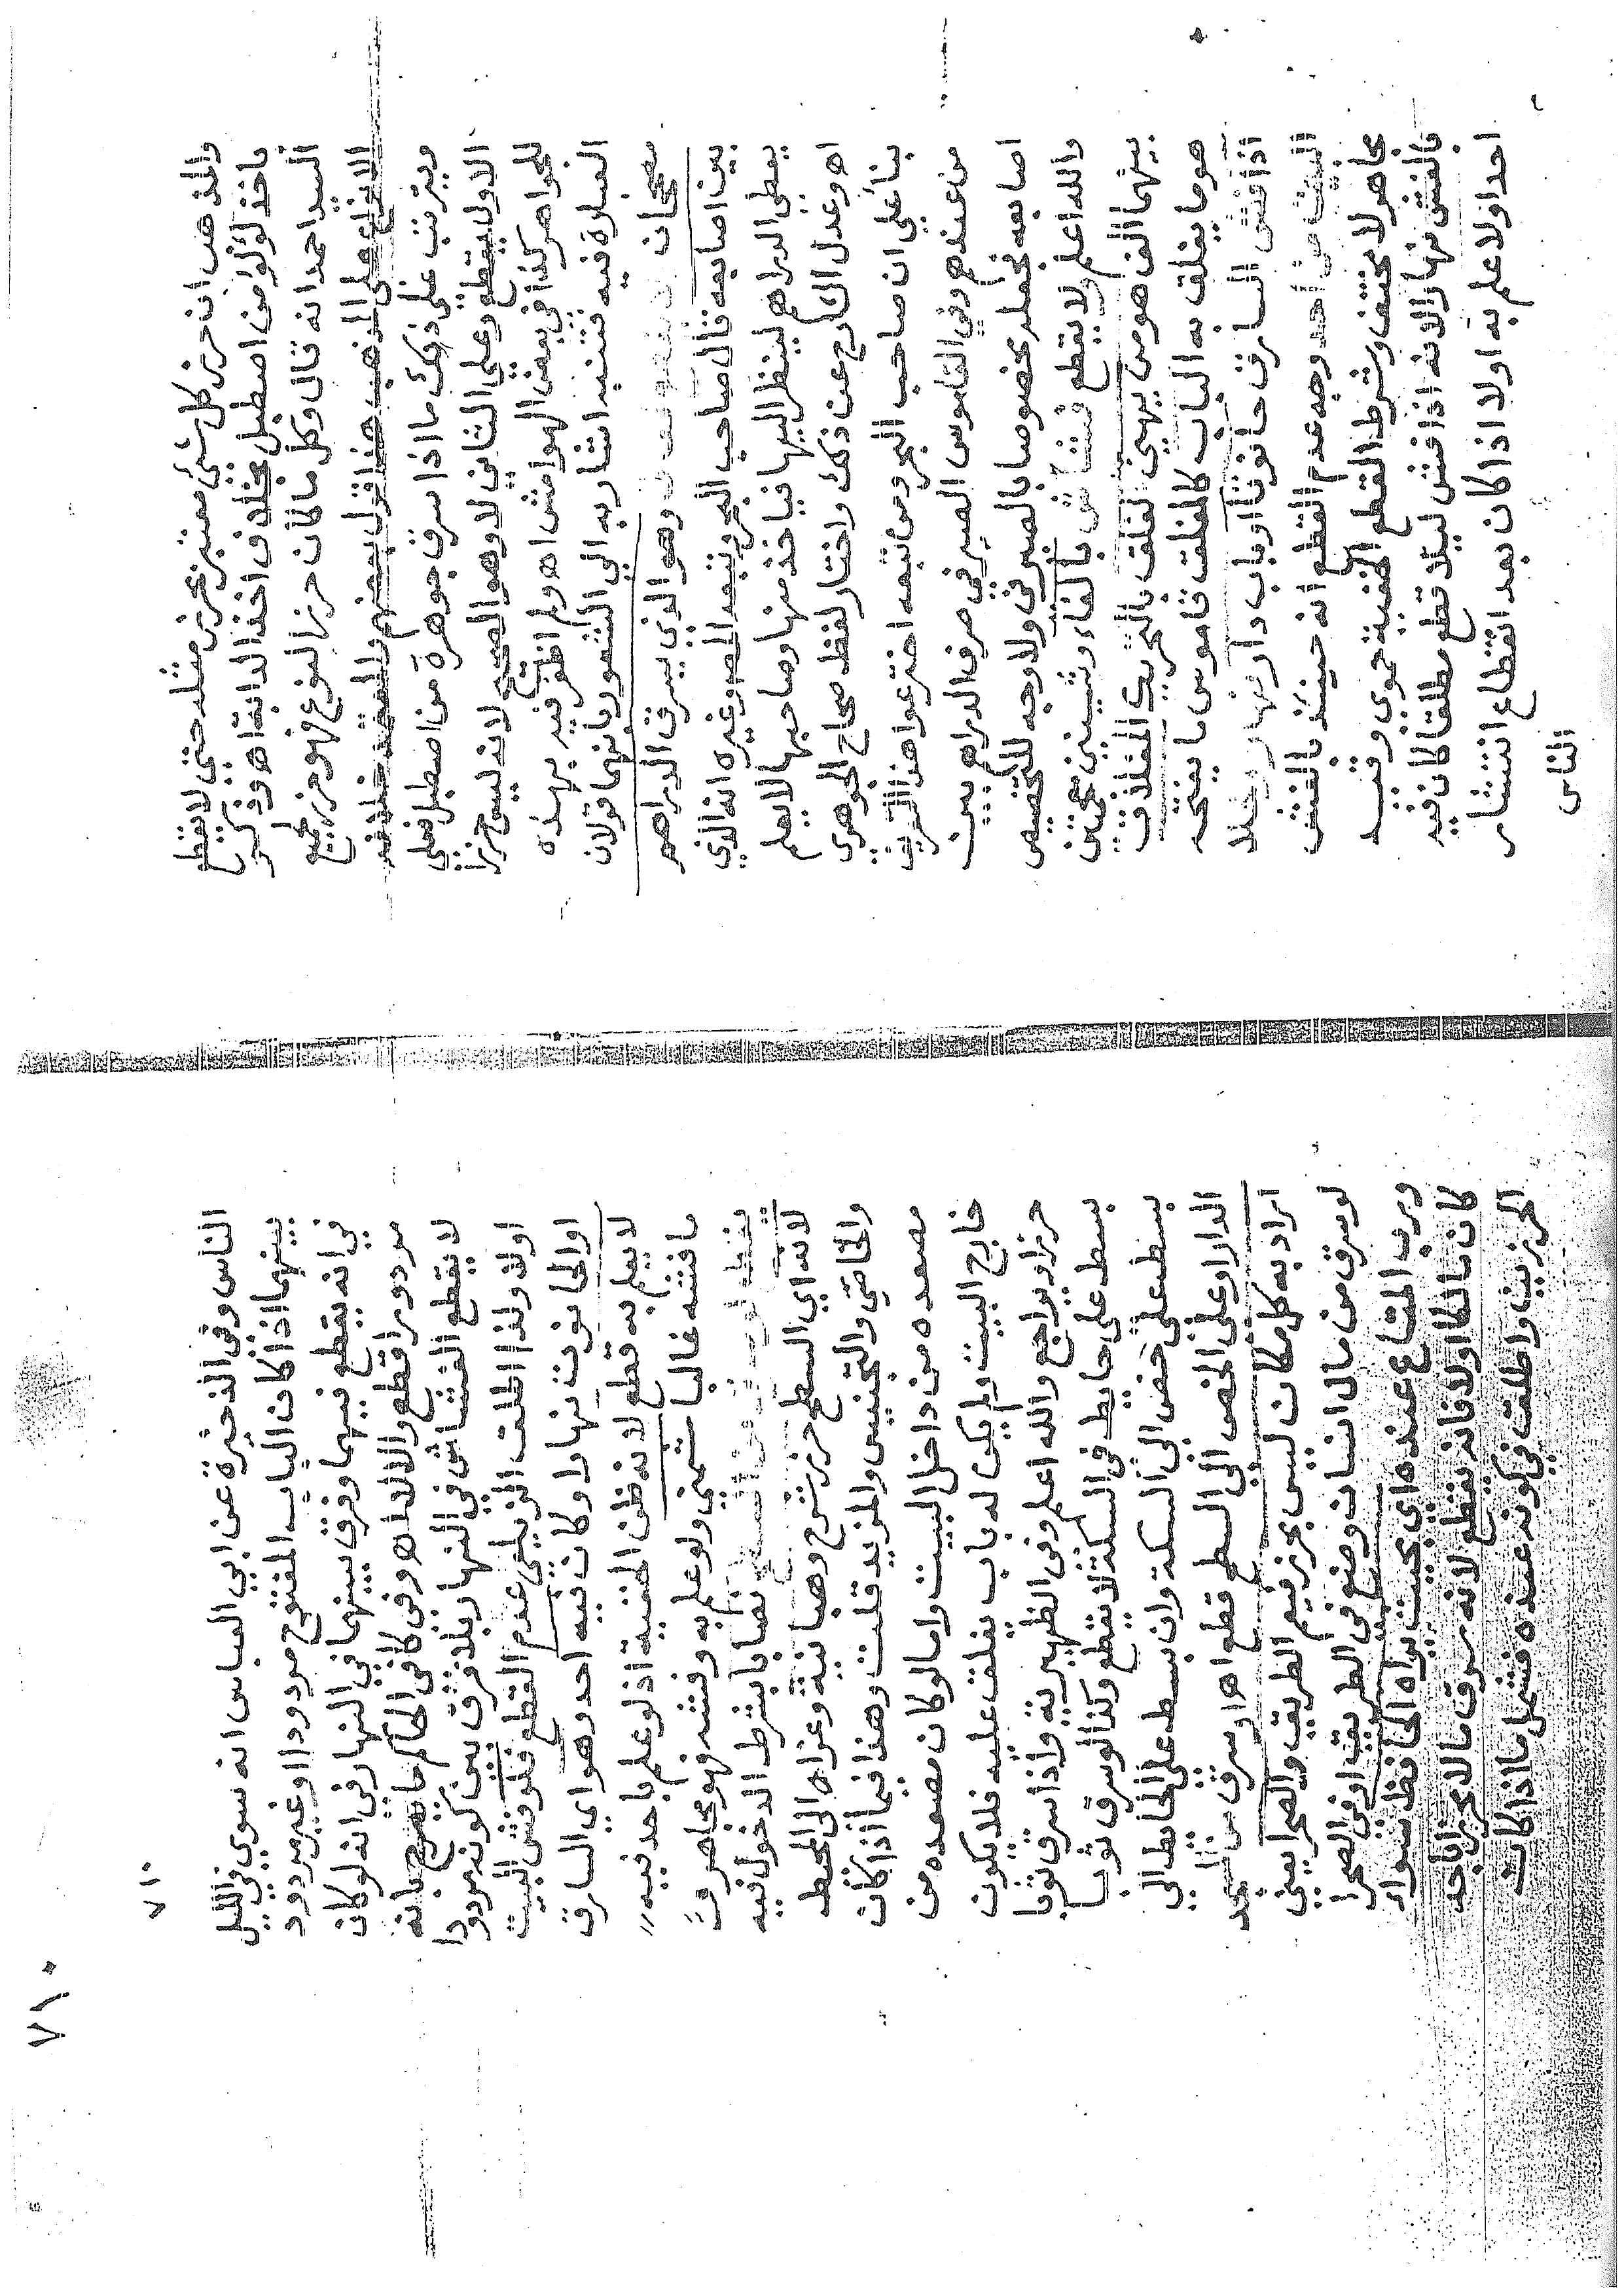 والمذهب ان حرز كل شئ معتبر بحرز مثله حتى لا يقطع
باخذ لؤلؤ من اصطبل بخلاف اخذ الدابة اه وذكر
السيد احمد انه قال وكل ما كان حرزا لنوع فهو حرز لجميع
الانواع على المذهب هذا قول بعضهم والمعتمد خلافه
ويترتب على ذلك ما اذا سرق جوهرة من اصطبل فعلى
الاول يقطع وعلى الثاني لا وهو الصحيح لانه ليس حرزا
للجواهر كذا في بعض الهوامش اه ولم اظفر فيه بهذه
العبارة فيه فتنبه اشار به الى الشعور بانهما قولان
مصححان وهو الذي يسرق الدراهم
بين اصابعه قال صاحب البحر وتبعه المص وغيره انه الذي
يعطى الدراهم لينظر اليها فياخذ منها وصاحبها لا يعلم
اه وعدل الشارح عن ذلك واختار لفظ صحاح الجوهري
بناء على ان صاحب البحر ومن تبعه اخترعوا هذا التعريف
من عندهم وفي القاموس الصيرفي صرف الدراهم بين
اصابعه فجعله مخصوصا بالصيرفي ولا وجه للتخصيص
والله اعلم ولا يقطع فشاش بالفاء وشينين معجمتين
بينهما الف هو من يهيئ لغلق بالتحريك المغلاق
هو ما يغلق به الباب كالمغلق قاموس ما يفتحه
اذا فش السارق حانوتا او باب دار نهارا وخلا
البيت من احد وجه عدم القطع انه حينئذ بالفش
مجاهر لا مختف وشرط القطع الخفية حموي وقيد
بالفش نهارا لانه اذا فش ليلا قطع مطلقا كان فيه
احد اولا علم به اولا اذا كان بعد انقطاع انتشار
الناس
٧١٠
٧١٠
الناس وفي الذخيرة عن ابي العباس انه سوى في الليل
بينهما اذا كان الباب المفتوح مردودا او غير مردود
في انه يقطع فيهما وفرق بينهما في النهار في انه لو كان
مردودا قطع والا لا اه وفي كافي الحاكم ما يصرح بانه
لا يقطع الفشاش في النهار بلا فرق بين كونه مردودا
اولا ولذا اطلق الزيلعي عدم القطع فلو فش البيت
او الحانوت نهارا وكان فيه احد وهو اي السارق
لا يعلم به قطع لانه ظن الخفية اذ لو علم باحد فيه
ما فشه غالبا شمني ولو علم به وفشه فهو مجاهر
يقطع لو سرق من السطح نصابا بشرط الدخول فيه
لانه اي السطح حرز شرح وهبانية وعزاه الى المحيط
والخاصي والتجنيس والمزيد قلت وهذا فيما اذا كان
مصعده من داخل البيت واما لو كان مصعده من
خارج البيت ولم يكن له باب يغلق عليه فلا يكون
حرزا ويراجع والله اعلم وفي الظهيرية واذا سرق ثوبا
بسط على حايط في السكة لا يقطع وكذا لو سرق ثوبا
بسط على خص الى السكة وان بسط على الحايط الى
الدار او على الخص الى السطح قطع اه او سرق من المسجد
اراد به كل مكان ليس بحرز فيعم الطريق والصحرا يعني
لو سرق من مال انسان وضع في الطريق او في الصحرا
ورب المتاع عنده اي بحيث يراه الحافظ سواء
كان مالكا اولا فانه يقطع لانه سرق مالا محرزا باحد
الحرزين واطلق في كونه عنده فشمل ما اذا كان